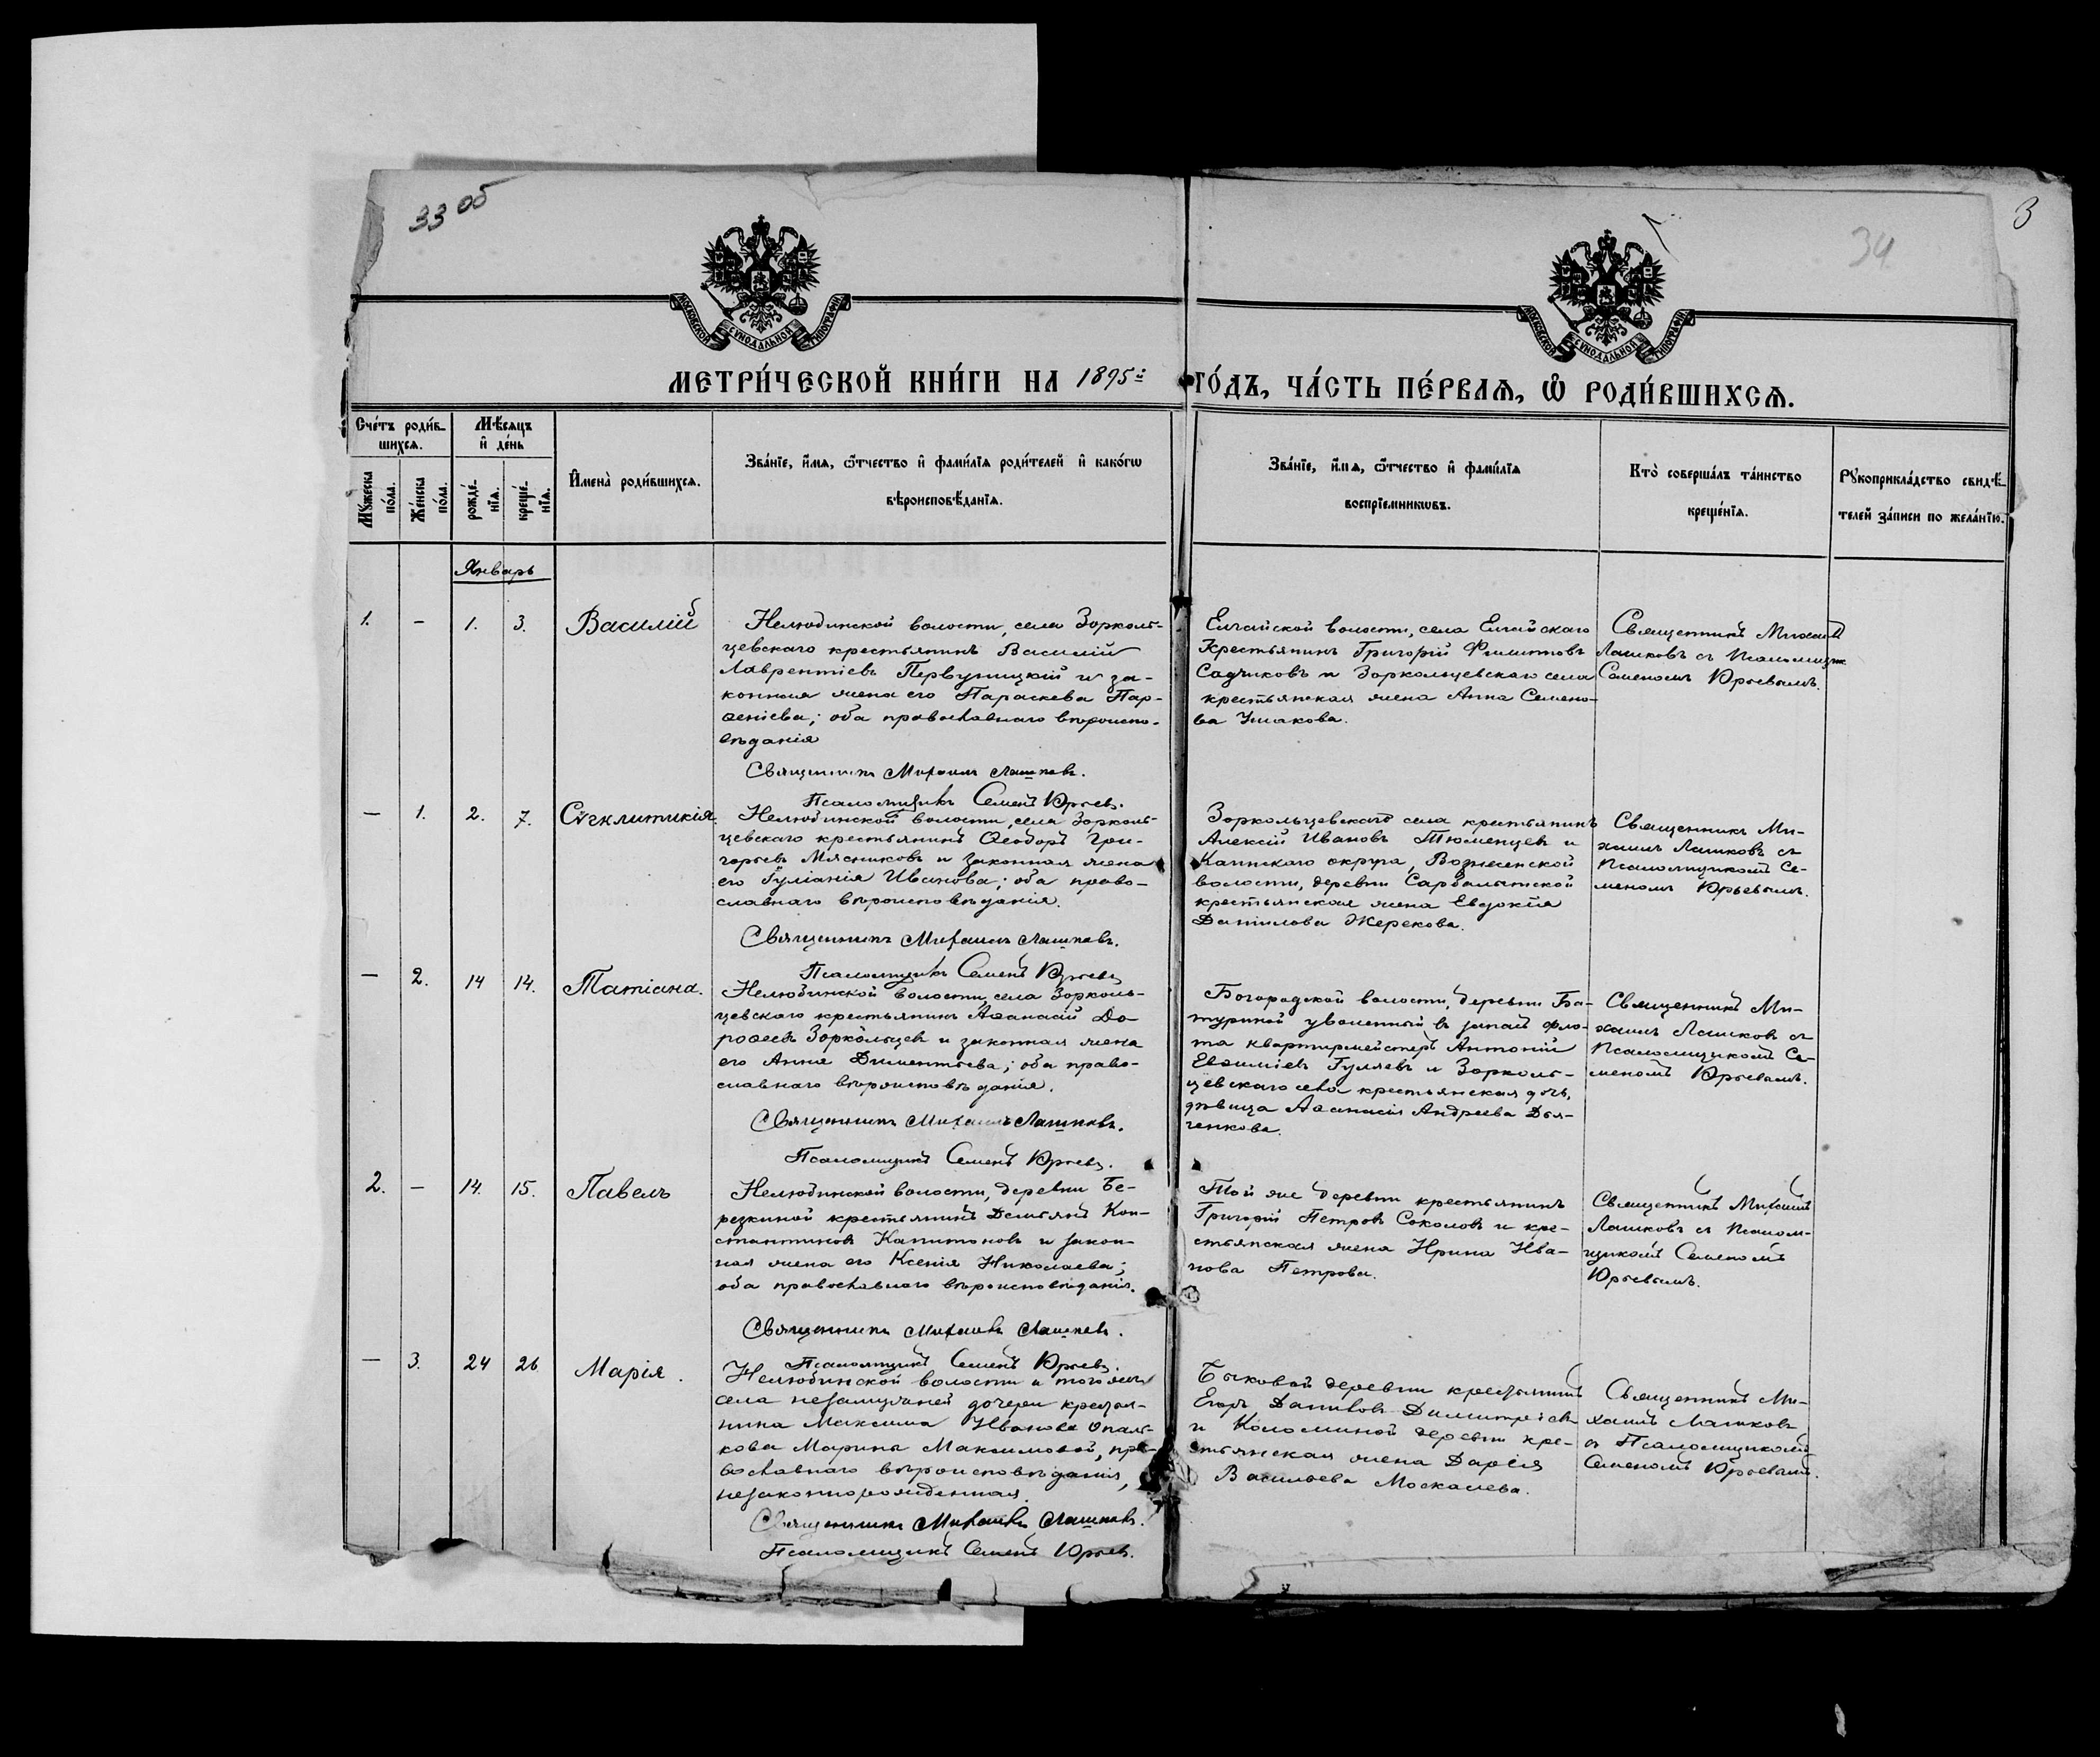 33 об
3
34
МОСКОВСКОЙ СѴНОДАЛЬНОЙ ТИПОГРАФІИ
МОСКОВСКОЙ СѴНОДАЛЬНОЙ ТИПОГРАФІИ
МЕТРИ́ЧЕСКОЙ КНИ́ГИ НА 1895й ГО́ДЪ, ЧА́СТЬ ПЕ́РВАѦ, Ѡ҆ РОДИ́ВШИХСѦ.
Сче́тъ роди́в-
шихсѧ.
Мꙋ́жеска по́ла.
Же́нска по́ла.
Мѣ́сѧцъ
и҆ де́нь
рожде́-
нїѧ.
креще́-
нїѧ.
И҆мена̀ роди́вшихсѧ.
Зва́нїе, и҆́мѧ, ѻ҆́тчество и҆ фами́лїѧ роди́телей и҆ како́гѡ
вѣроисповѣ́данїѧ.
Зва́нїе, и҆́мѧ, ѻ҆́тчество и҆ фами́лїѧ
воспрїемникѡвъ.
Кто̀ соверша́лъ та́инство
креще́нїѧ.
Рꙋкоприкла́дство свидѣ́-
телей за́писи по жела́нїю.
Январь
1. – 1. 3. Василій
Нелюбинской волости, села Зорколь-
цевскаго крестьянинъ Василій
Лаврентіевъ Первушицкій и за-
конная жена его Параскева Пар-
ѳеніева; оба православнаго вѣроиспо-
вѣданія
Священникъ Михаилъ Лашковъ.
Псаломщикъ Семенъ Юрьевъ.
Елгайской волости, села Елгайскаго
Крестьянинъ Григорій Филиповъ
Садчиковъ и Зоркольцевскаго села
крестьянская жена Анна Семено-
ва Ушакова.
Священникъ Михаилъ
Лашковъ съ Псаломщик
Семеномъ Юрьевымъ.
– 1. 2. 7. Сѵгклитикія.
Нелюбинской волости, села Зорколь-
цевскаго крестьянинъ Ѳеодоръ Гри-
горьевъ Мясниковъ и законная жена
его Іуліанія Иванова; оба право-
славнаго вѣроисповѣданія.
Священникъ Михаилъ Лашковъ.
Псаломщикъ Семенъ Юрьевъ
Зоркольцевскаго села крестьянинъ
Алексій Ивановъ Тюменцевъ и
Каинскаго округа, Вознесенской
волости, деревни Сарбалыкской
крестьянская жена Евдокія
Данилова Жерекова.
Священникъ Ми-
хаилъ Лашковъ съ
Псаломщикомъ Се-
меномъ Юрьевымъ.
– 2. 14 14. Татіана.
Нелюбинской волости, села Зорколь-
цевскаго крестьянинъ Аѳанасій До-
роѳеевъ Зоркольцев и законная жена
его Анна Диментьева; оба право-
славнаго вѣроисповѣданія.
Священникъ Михаилъ Лашковъ.
Псаломщикъ Семенъ Юрьевъ.
Богородской волости, деревни Ба-
туриной уволенный въ запасъ фло-
та квартирмейстеръ Антоній
Евѳиміевъ Гуляевъ и Зорколь-
цевскаго села крестьянская дочь,
дѣвица Аѳанасія Андреева Дья-
ченкова.
Священникъ Ми-
хаилъ Лашков съ
Псаломщикомъ Се-
меномъ Юрьевымъ.
2. – 14. 15. Павелъ
Нелюбинской волости, деревни Бе-
резкиной крестьянинъ Демьянъ Кон-
стантиновъ Капитоновъ и закон-
ная жена его Ксенія Николаева;
оба православнаго вѣроисповѣданія.
Священникъ Михаилъ Лашковъ.
Псаломщикъ Семенъ Юрьевъ.
Той же деревни крестьянинъ
Григорій Петровъ Соколовъ и кре-
стьянская жена Ирина Ива-
нова Петрова.
Священникъ Михаилъ
Лашковъ съ Псалом-
щикомъ Семеномъ
Юрьевымъ.
– 3. 24 26 Марія.
Нелюбинской волости и того же
села незамужней дочери крестья-
нина Максима Иванова Опаль-
кова Марины Максимовой, пра-
вославнаго вѣроисповѣданія,
незаконнорожденная.
Священникъ Михаилъ Лашковъ.
Псаломщикъ Семенъ Юрьев.
Быковой деревни крестьянинъ
Егоръ Даниловъ Димитріевъ
и Коломиной деревни кре-
стьянская жена Дарія
Васильева Москалева.
Священникъ Ми-
хаилъ Лашковъ
съ Псаломщикомъ
Семеномъ Юрьевымъ.